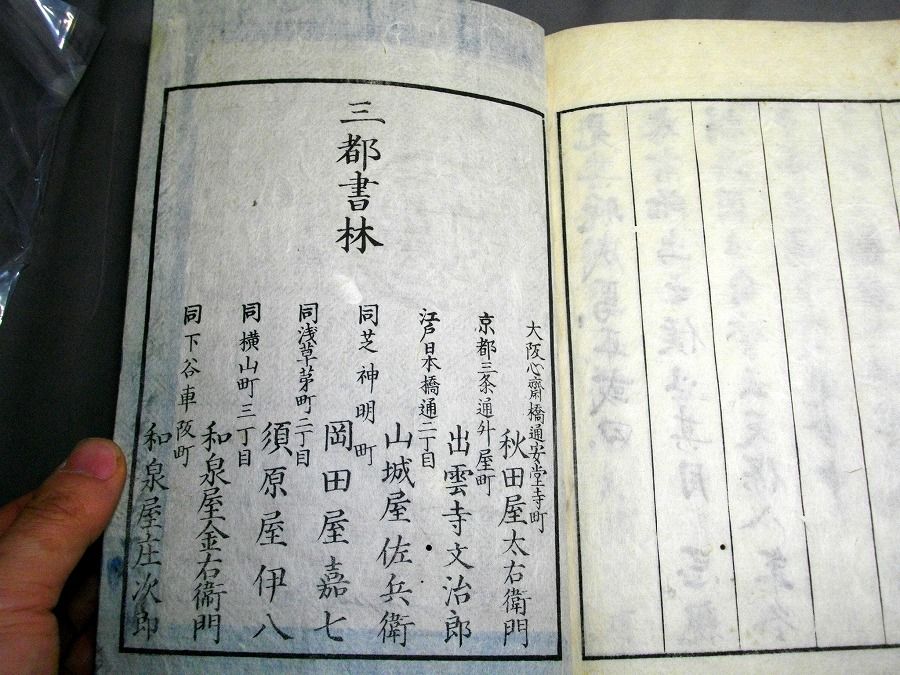 三都書林
大阪心齋橋通安堂寺町
秋田屋太右衛門
京都三条通外屋町
出雲寺文治郎
江戸日本橋通二丁目
山城屋佐兵衛
同芝神明町
岡田屋嘉七
同浅草茅町二丁目
須原屋伊八
同横山町三丁目
和泉屋金右衛門
同下谷車阪町
和泉屋庄次郎